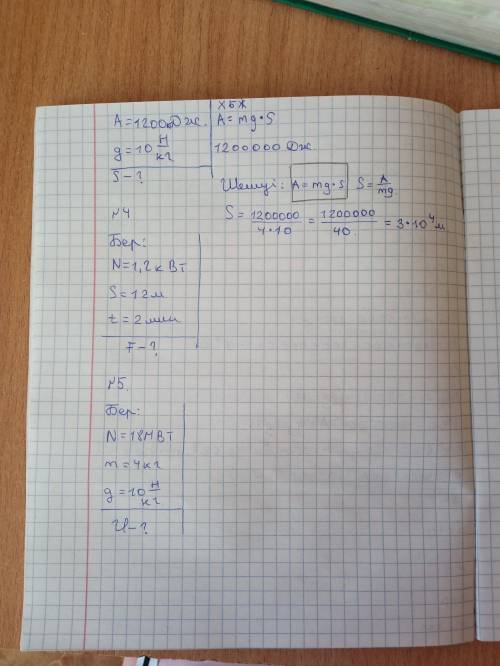 ХБЖ
A=1200кДж. A=mg·S
g=10 Н/кг 1200000 Дж
S-?
Шешуі: A=mg·S S=A/mg
S=1200000/4·10=1200000/40=3·10⁴м
№4
Бер:
N=1,2кВт
S=12м
t=2мин
F-?
№5.
Бер:
N=18МВт
m=4кг
g=10 Н/кг
U-?